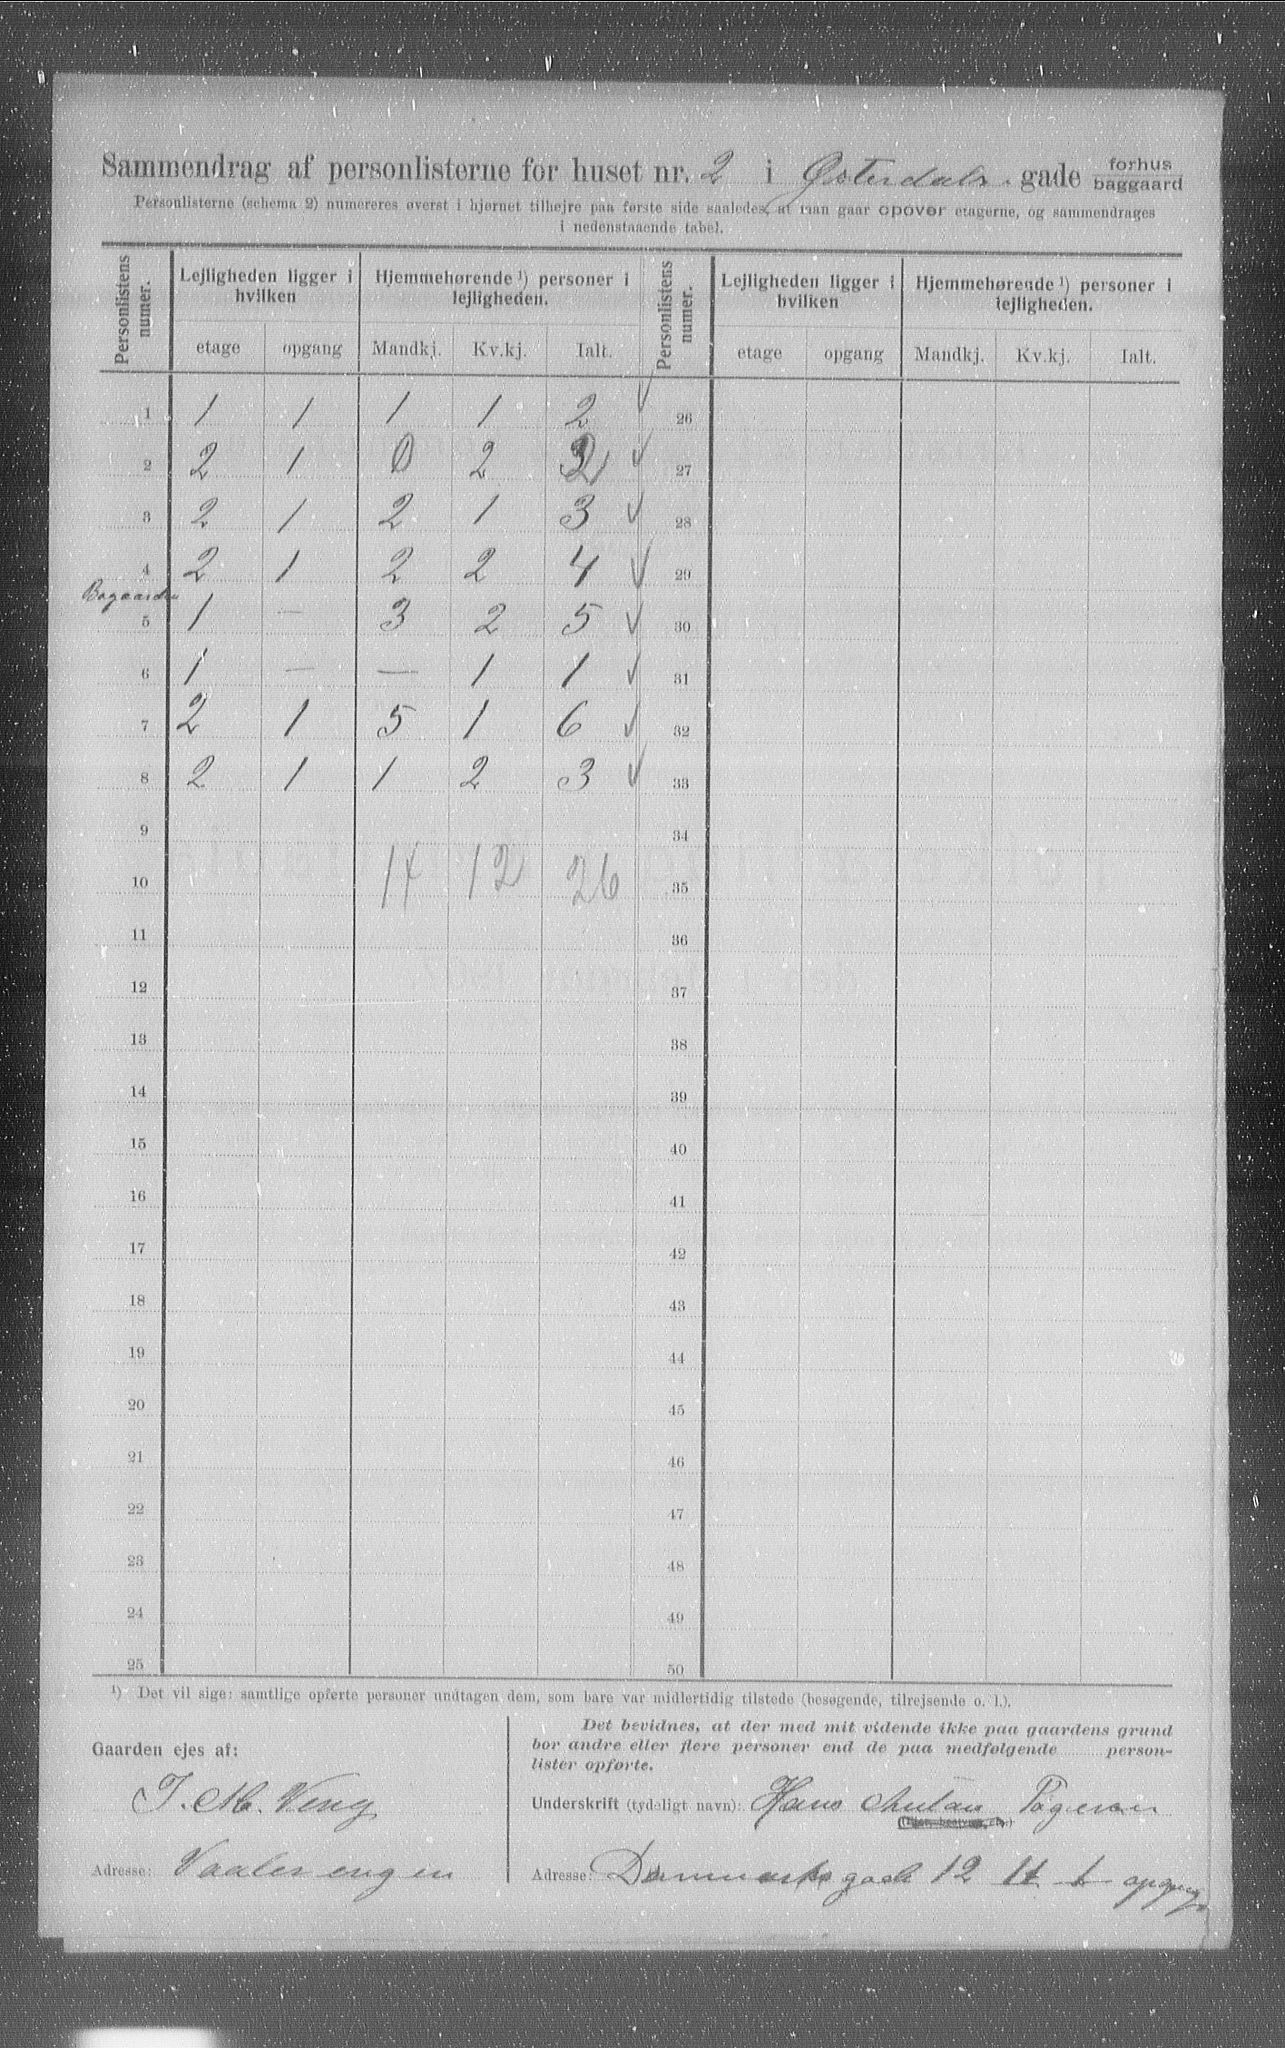 Sammendrag af personlisterne for huset nr. 2 i Østerdals gade forhus baggaard
Personlisterne (schema 2) numereres øverst i hjørnet tilhøjre paa første side saaledes, at man gaar opover etagerne, og sammendrages
i nedenstaaende tabel.
Personlistens numer. Lejligheden ligger i hvilken Hjemmehørende ¹) personer i lejligheden. Personlistens numer. Lejligheden ligger i hvilken Hjemmehørende ¹) personer i lejligheden.
etage opgang Mandkj. Kv.kj. Ialt. etage opgang Mandkj. Kv.kj. Ialt.
1 1 1 1 1 2 ✓ 26
2 2 1 0 2 2 ✓ 27
3 2 1 2 1 3 ✓ 28
4 2 1 2 2 4 ✓ 29
Bagaarden
5 1 — 3 2 5 ✓ 30
6 1 — — 1 1 ✓ 31
7 2 1 5 1 6 ✓ 32
8 2 1 1 2 3 ✓ 33
9 34
10 14 12 26 35
11 36
12 37
13 38
14 39
15 40
16 41
17 42
18 43
19 44
20 45
21 46
22 47
23 48
24 49
25 50
¹) Det vil sige: samtlige opførte personer undtagen dem, som bare var midlertidig tilstede (besøgende, tilrejsende o. l.).
Gaarden ejes af:
J. M. Veng
Adresse: Vaalerengen
Det bevidnes, at der med mit vidende ikke paa gaardens grund
bor andre eller flere personer end de paa medfølgende person-
lister opførte.
Underskrift (tydeligt navn): Hans
Adresse: Danmarks gade 12 II 1 opgang